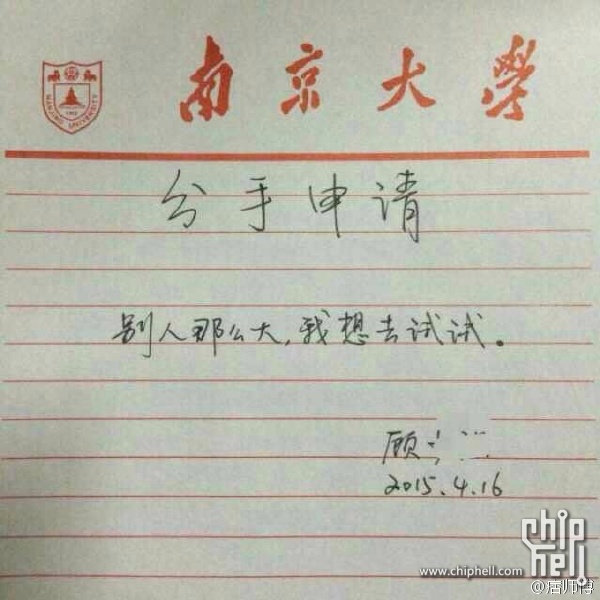 南京大學
NANJING UNIVERSITY
1902
分手申请
别人那么大,我想去试试。
顾
2015.4.16
chip
hell
www.chiphell.com